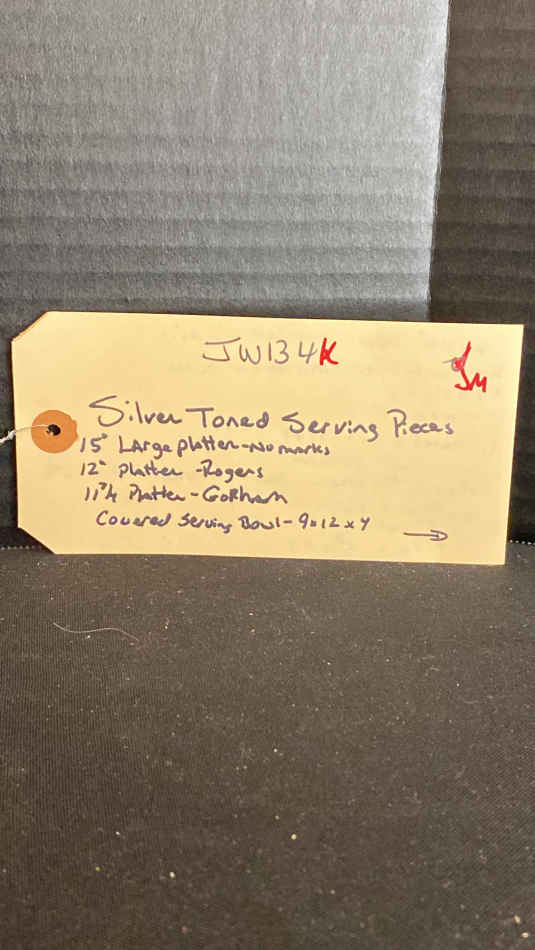 JW134K
JM
Silver Toned Serving Pieces
15" Large platter - No marks
12" platter - Rogers
Platter - Gorham
Covered Serving Bowl - 9x12x4
→